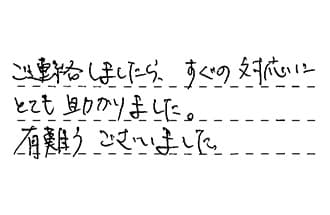 ご連絡しましたら、すぐの対応に
とても助かりました。
有難うございました。